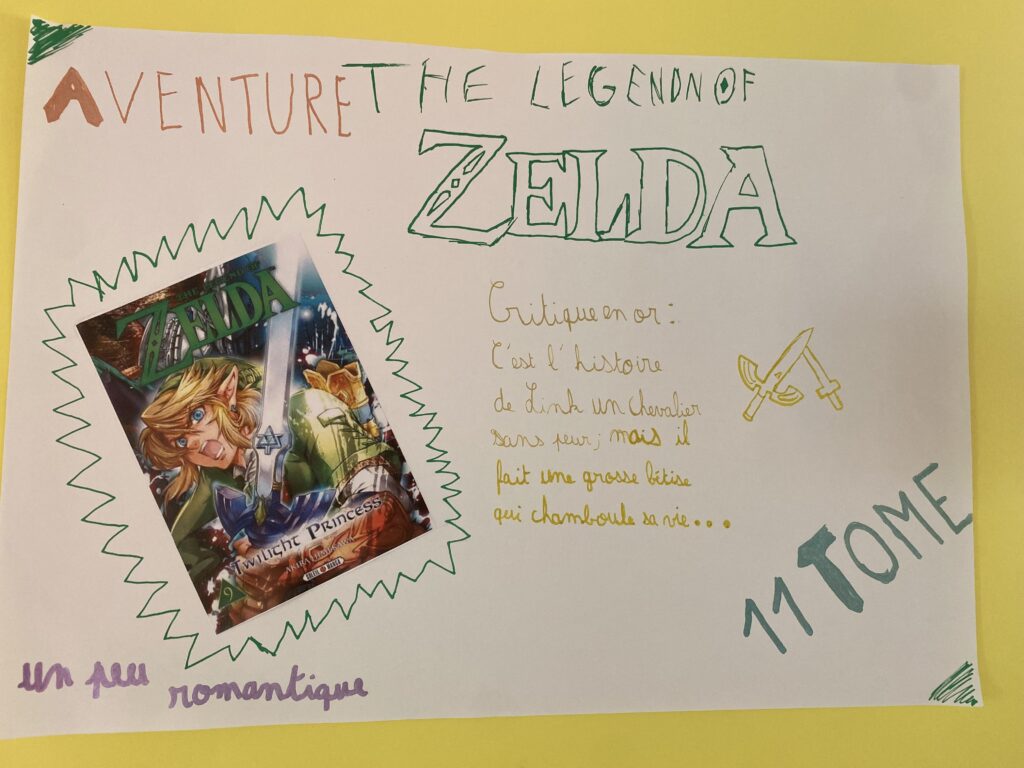 AVENTURE THE LEGENDN OF
ZELDA
THE LEGEND OF
ZELDA
Twilight Princess
AKIRA HIMEKAWA
SOLEIL MANGA
9
Critique en or :
C'est l'histoire
de Link un chevalier
sans peur; mais il
fait une grosse bêtise
qui chamboule sa vie...
11 TOME
un peu
romantique